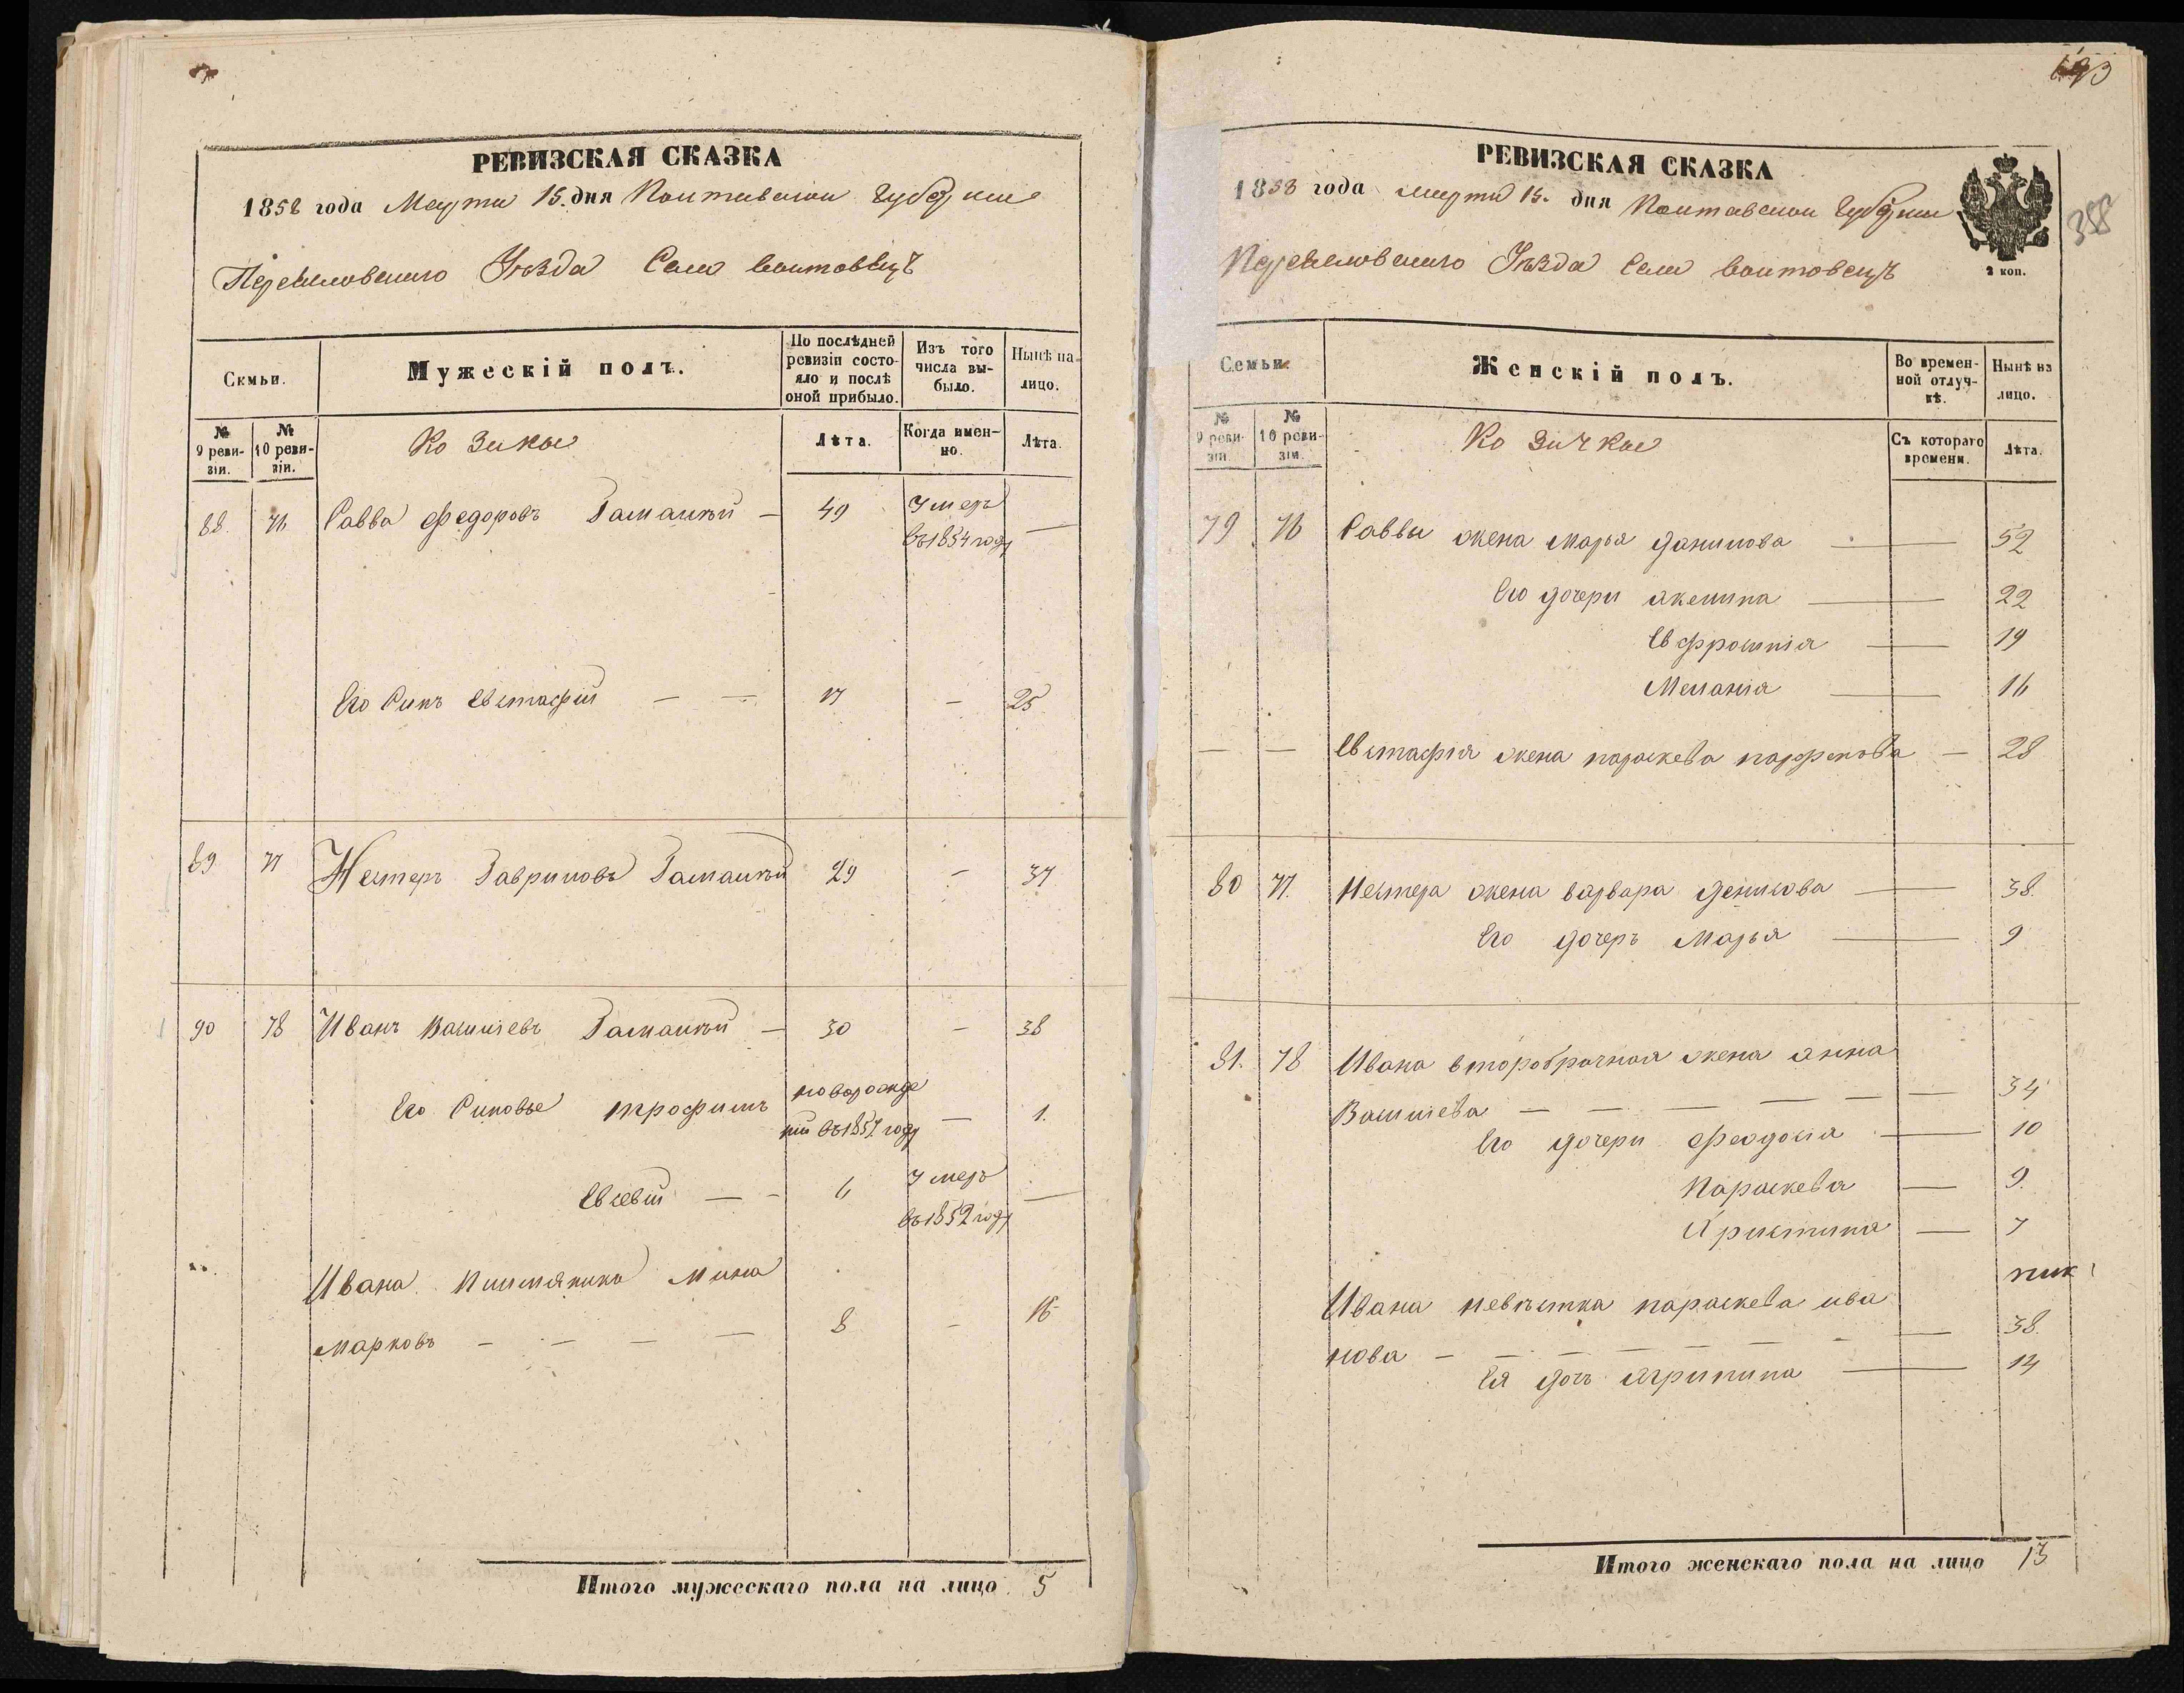 РЕВИЗСКАЯ СКАЗКА
1858 года Марта 15. дня Полтавской Губерніи
Переяславскаго Уѣзда Села Воитовецъ
Семьи.
Мужескій полъ.
По послѣдней ревизіи состояло и послѣ оной прибыло.
Изъ того числа выбыло.
Нынѣ на-лицо.
№ 9 ревизіи.
№ 10 ревизіи.
Козаки
Лѣта.
Когда именно.
Лѣта.
88. 76 Савва Федоровъ Гамалѣй — 49 Умеръ въ 1854 году —
Его Синъ Евстафій — — 17 — 25
89 77 Нестеръ Гавриловъ Гамалѣй 29 — 37
90 78 Иванъ Василіевъ Гамалѣй — 30 — 38
Его Синовье Трофимъ новорожденій въ 1857 году — 1.
Евсевій — — 6 Умеръ въ 1852 году —
Ивана Мина
Марковъ — — — — 8 — 16
Итого мужескаго пола на лицо 5
193
388
РЕВИЗСКАЯ СКАЗКА
1858 года Марта 15. дня Полтавской Губерніи
2 коп.
Переяславскаго Уѣзда Села Воитовецъ
Семьи.
Женскій полъ.
Во временной отлучкѣ.
Нынѣ на лицо.
№ 9 ревизіи
№ 10 ревизіи.
Козачки
Съ котораго времени.
Лѣта.
79 76 Саввы жена Марья Данилова — 52
Его дочери Акелина — 22
Евфросинія — 19
Меланія — 16
— — Евстафія жена Параскева Парфенова — 28
80 77. Нестера жена Варвара Денисова — 38.
Его дочеръ Марья — 9
81. 78 Ивана второбрачная жена Анна
Василіева — — — — — — 34
Его дочери Феодосія — 10
Параскева — 9.
Христина — 7
Ивана невѣстка Параскева Ива
нова — — — — — — 38.
Ея дочь Агрипина — 14
Итого женскаго пола на лицо 13